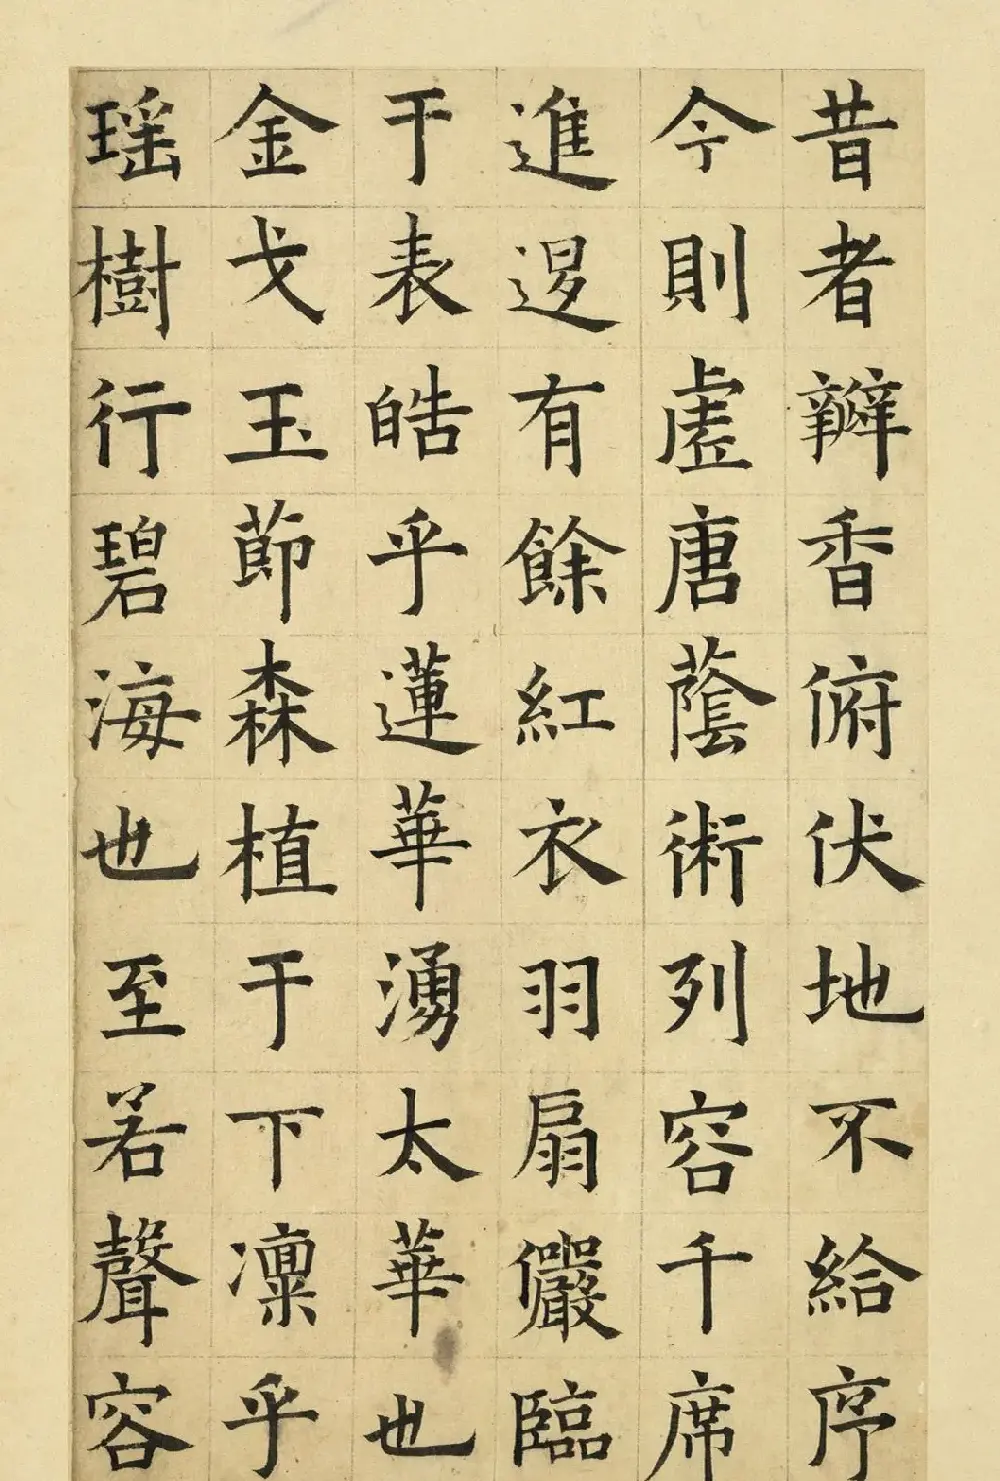 昔者辦香俯伏地不給序
今則虗唐蔭術列容千席
進退有餘紅衣羽扇儼臨
于表皓乎蓮華湧太華也
金戈玉節森植于下凜乎
瑶樹行碧海也至若聲容